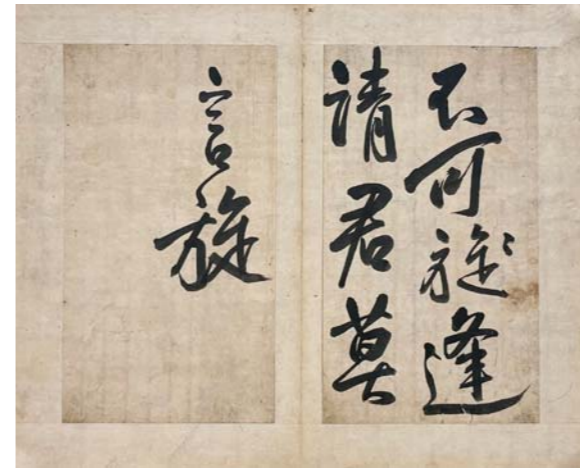 不可旋逢
請君莫
言旋